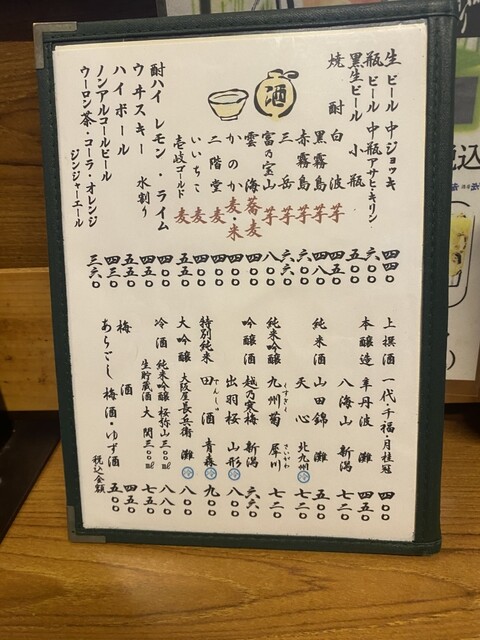 生ビール 中ジョッキ 四四〇
瓶ビール 中瓶アサヒ・キリン 六〇〇
黒生ビール 小瓶 五〇〇
焼酎 白波 芋 四五〇
黒霧島 芋 四八〇
赤霧島 芋
三岳 芋
富乃宝山 芋 八〇〇
雲海 蕎麦 四〇〇
かのか 麦・米 四〇〇
二階堂 麦 四〇〇
いいちこ 麦 四〇〇
壱岐ゴールド 麦 五五〇
酎ハイ レモン・ライム 四〇〇
ウヰスキー 水割り 四五〇
ハイボール 四五〇
ノンアルコールビール 四三〇
ウーロン茶・コーラ・オレンジ
ジンジャーエール 三六〇
酒
上撰酒 一代・千福・月桂冠 四〇〇
本醸造 幸丹波 灘 四五〇
八海山 新潟 七二〇
純米酒 山田錦 灘 五〇〇
天心 北九州 冷 七二〇
純米吟醸 九州菊 くすぎく 犀川 さいがわ 七二〇
吟醸酒 越乃寒梅 新潟 六六〇
出羽桜 山形 冷 八〇〇
特別純米 田酒 でんしゅ 青森 冷 九〇〇
大吟醸 大阪屋長兵衛 灘 冷 八〇〇
冷酒 純米吟醸 桜弥山 三〇〇ml 八八〇
生貯蔵酒 大関 三〇〇ml 七五〇
梅酒 四五〇
あらごし 梅酒・ゆず酒 五〇〇
税込金額
税込